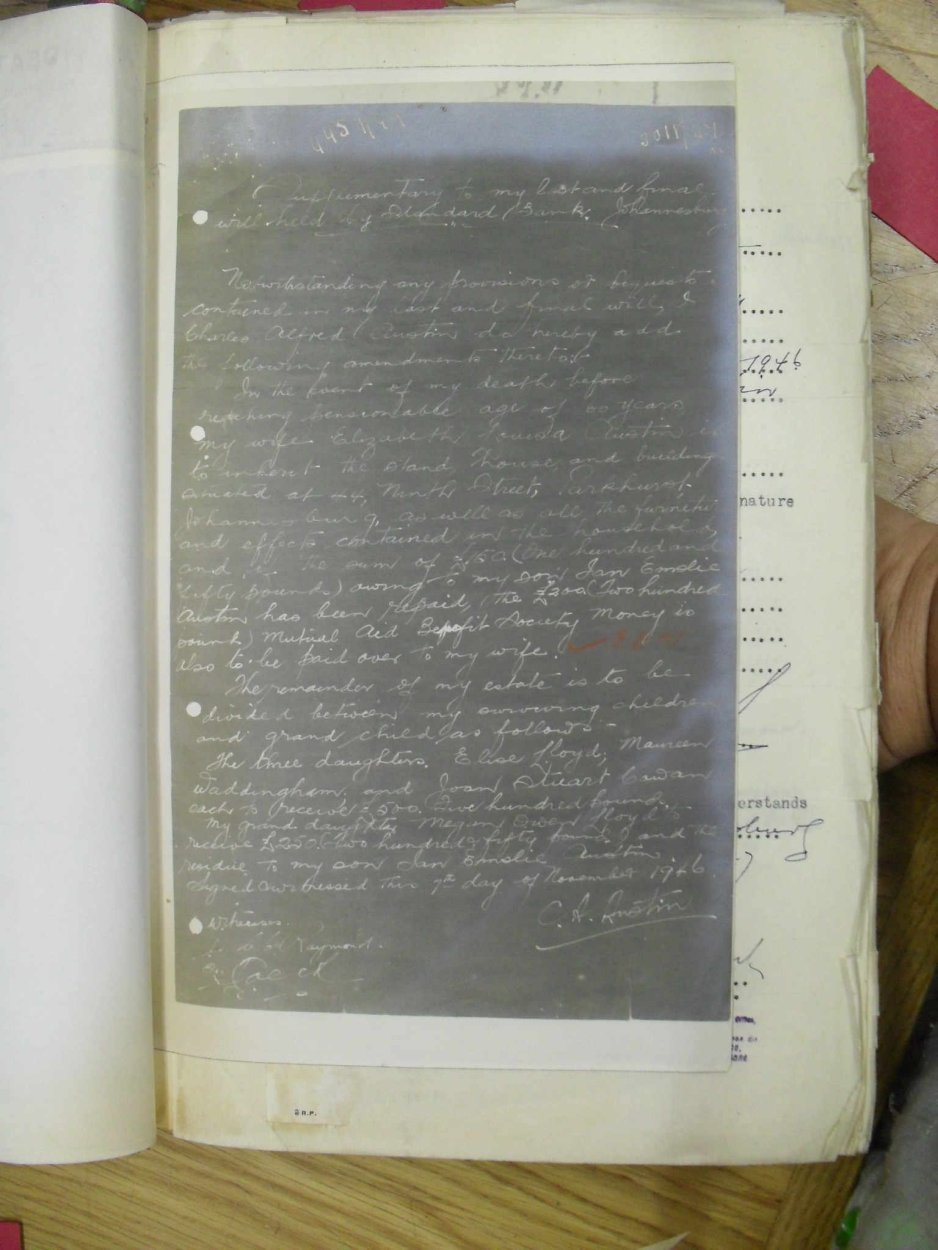 Supplementary to my last and final
will held by Standard Bank, Johannesburg
Notwithstanding any provisions or bequests
contained in my last and final will, I
Charles Alfred Austin do hereby add
the following amendments thereto:-
In the event of my death before
reaching pensionable age of 60 years
my wife Elizabeth Louisa Austin is
to inherit the stand, house, and buildings
situated at 44, Ninth Street, Parkhurst,
Johannesburg, as well as all the furniture
and effects contained in the household,
and the sum of £150 (One hundred and
fifty pounds) owing to my son Ian Emslie
Austin has been repaid, the £200 (Two hundred
pounds) Mutual Aid Benefit Society Money is
also to be paid over to my wife.
The remainder of my estate is to be
divided between my surviving children
and grand child as follows-
The three daughters. Elise Lloyd, Maureen
Waddingham, and Joan Stuart Cowan
each to receive £500 Five hundred pounds.
My grand daughter Megan Gwen Lloyd to
receive two hundred & fifty pounds and the
residue to my son Ian Emslie Austin.
Signed & witnessed this 7th day of November 1946
C. A. Austin
Witnesses.
Raymond.
1946
nature
erstands